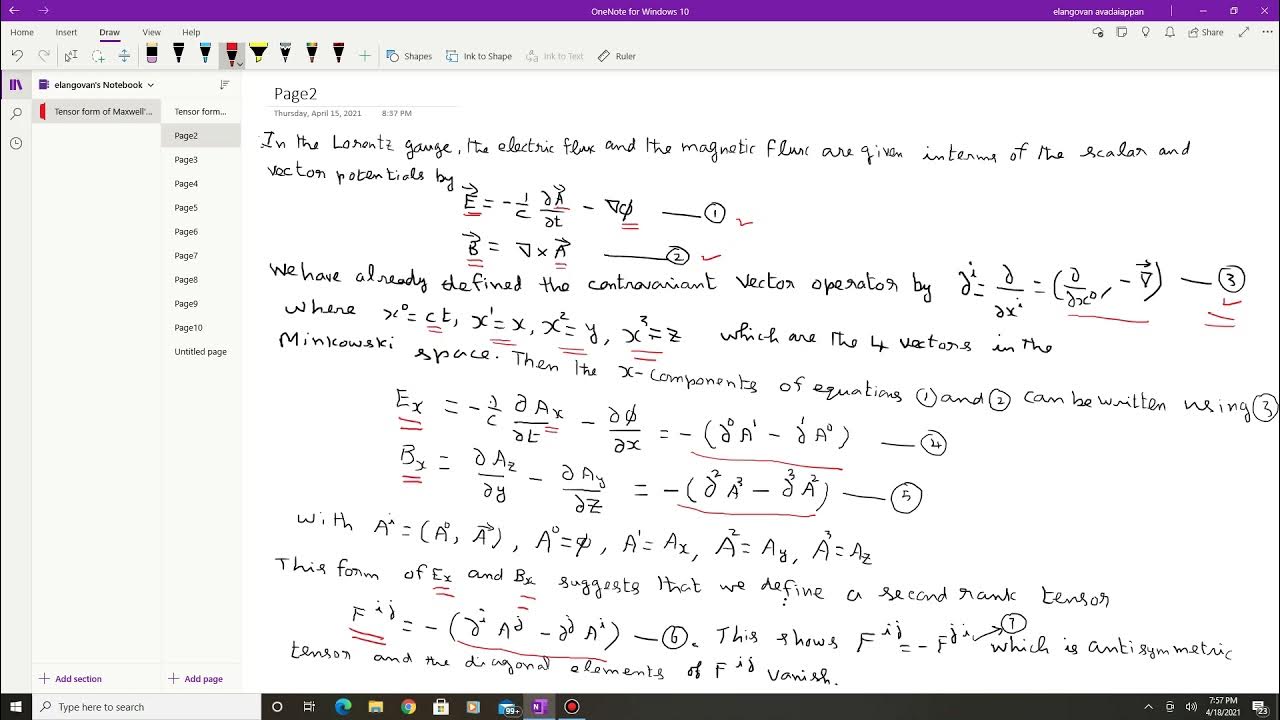 OneNote for Windows 10
elangovan avadaiappan
Home Insert Draw View Help
Share
Shapes Ink to Shape Ink to Text Ruler
elangovan's Notebook
Tensor form of Maxwell'...
Tensor form...
Page2
Page3
Page4
Page5
Page6
Page7
Page8
Page9
Page10
Untitled page
Add section
Add page
Page2
Thursday, April 15, 2021 8:37 PM
In the Lorentz gauge, the electric flux and the magnetic flux are given interms of the scalar and
vector potentials by
E⃗ = -1/c ∂A⃗/∂t - ∇φ —— ①
B⃗ = ∇ × A⃗ —— ②
We have already defined the contravariant vector operator by ∂^i = ∂/∂x^i = (∂/∂x^0, -∇⃗) —— ③
where x^0 = ct, x^1 = x, x^2 = y, x^3 = z which are the 4 vectors in the
Minkowski space. Then the x-components of equations ① and ② can be written using ③
E_x = -1/c ∂A_x/∂t - ∂φ/∂x = -(∂^0 A^1 - ∂^1 A^0) —— ④
B_x = ∂A_z/∂y - ∂A_y/∂z = -(∂^2 A^3 - ∂^3 A^2) —— ⑤
with A^i = (A^0, A⃗), A^0 = φ, A^1 = A_x, A^2 = A_y, A^3 = A_z
This form of E_x and B_x suggests that we define a second rank tensor
F^ij = -(∂^i A^j - ∂^j A^i) — ⑥. This shows F^ij = -F^ji → ⑦ which is antisymmetric
tensor and the diagonal elements of F^ij vanish.
Type here to search
99+
7:57 PM
4/18/2021